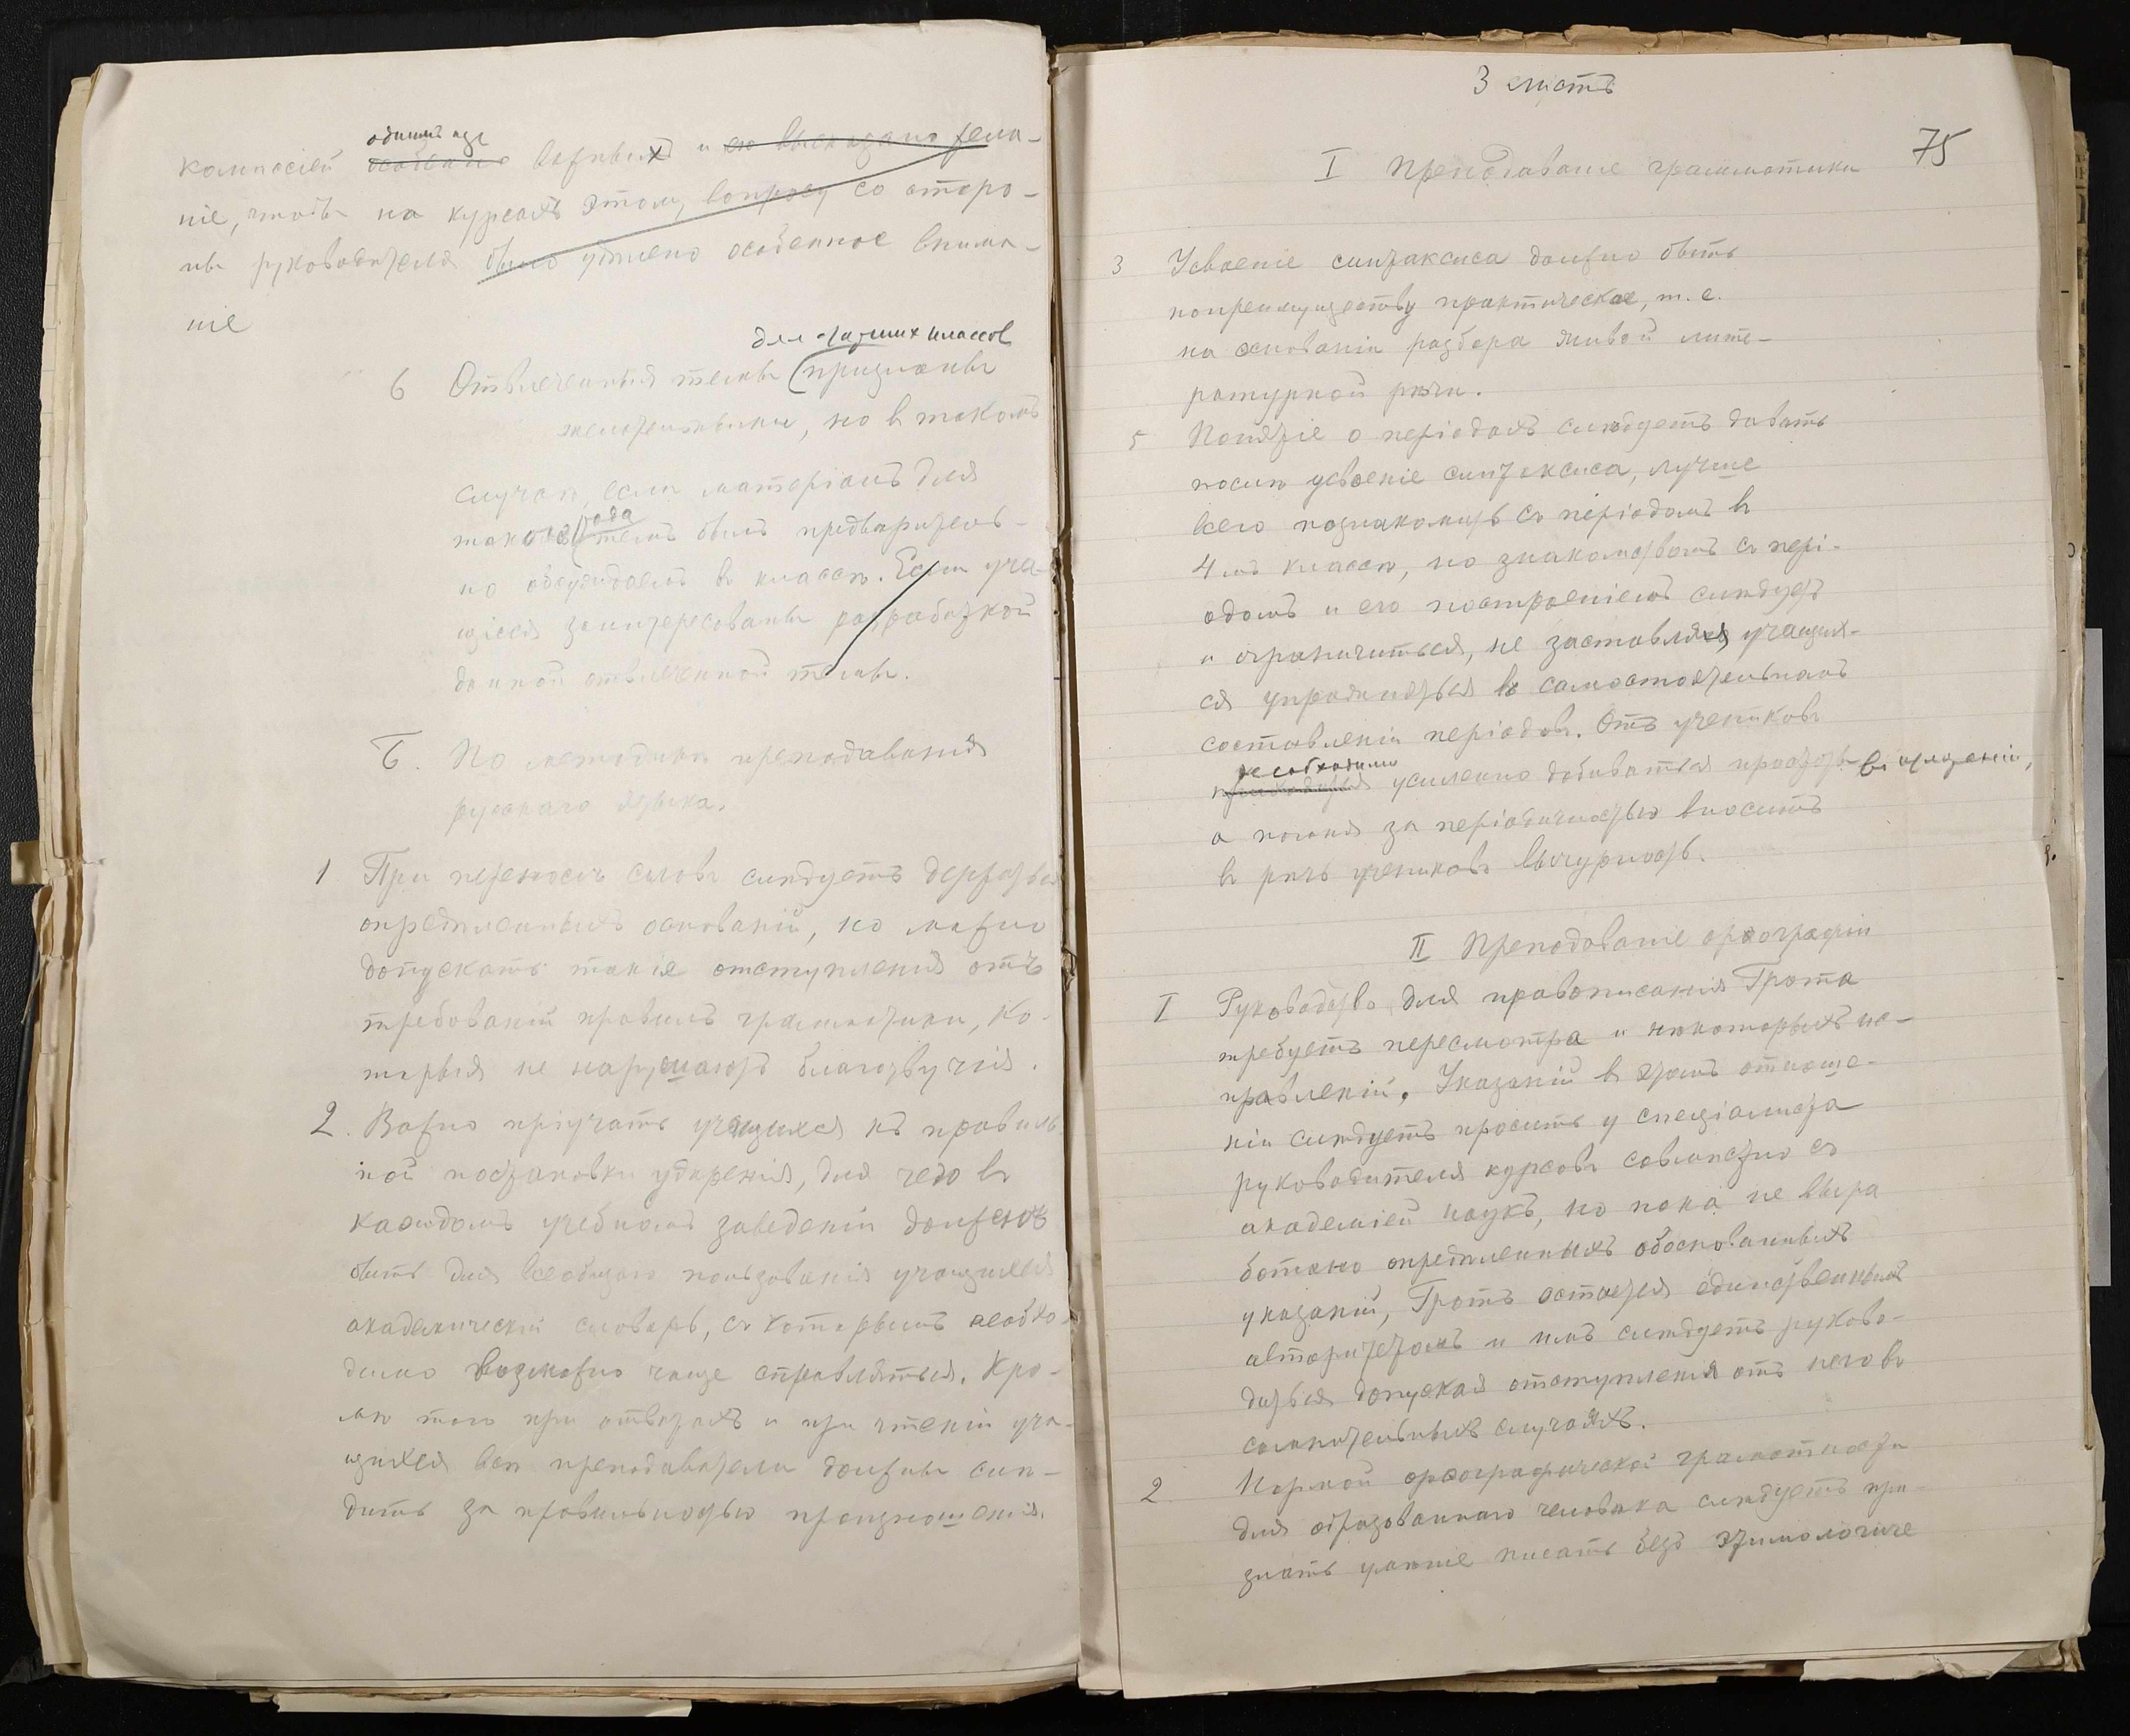 однимъ изъ
комиссіей особенно вѣрныхъ и ею высказано жела-
ніе, чтобы на курсахъ этому вопросу со сторо-
ны руководителя было удѣлено особенное внима-
ніе
для старшихъ классовъ
6 Отвлеченныя темы (признаны
желательными, но в такомъ
случаѣ, если матеріалъ для
рода
такого темъ былъ предваритель-
но обсуждаемъ въ классѣ. Если уча-
щіеся заинтересованы разработкой
данной отвлеченной темы.
Б. По методикѣ преподаванія
русскаго языка.
1 При переносѣ словъ слѣдуетъ держаться
опредѣленныхъ основаній, но можно
допускать такіе отступленія отъ
требованій правилъ грамматики, ко-
торыя не нарушаютъ благозвучія.
2. Важно пріучать учащихся къ правиль
ной постановкѣ ударенія, для чего въ
каждомъ учебномъ заведеніи долженъ
быть для всеобщаго пользованія учащихся
академическій словарь, съ которымъ необхо-
димо возможно чаще справляться. Кро-
мѣ того при отвѣтахъ и при чтеніи уча-
щихся всѣ преподаватели должны слѣ-
дить за правильностью произношенія.
3 листъ
75
I Преподаваніе грамматики
3 Усвоеніе синтаксиса должно быть
попреимуществу практическое, т. е.
на основаніи разбора живой лите-
ратурной рѣчи.
5 Понятіе о періодахъ слѣдуетъ давать
послѣ усвоеніе синтаксиса, лучше
всего познакомить съ періодомъ въ
4мъ классѣ, но знакомствомъ съ пері-
одомъ и его построеніемъ слѣдуетъ
и ограничиться, не заставляя учащих-
ся упражняться въ самостоятельномъ
составленіи періодовъ. Отъ учениковъ
необходимо
приходится усиленно добиваться простоты въ изложеніи,
а погоня за періодичностью вноситъ
въ рѣчь учениковъ вычурность.
II Преподаваніе орѳографіи
I Руководство для правописанія Грота
требуетъ пересмотра и нѣкоторыхъ ис-
правленій. Указаній в этомъ отноше-
ніи слѣдуетъ просить у спеціалиста
руководителя курсовъ совмѣстно съ
академіей наукъ, но пока не выра
ботано опредѣленныхъ обоснованныхъ
указаній, Гротъ остается единственнымъ
авторитетомъ и имъ слѣдуетъ руково-
диться допуская отступленія отъ него въ
сомнительныхъ случаяхъ.
2 Нормой орѳографической грамотности
для образованнаго человѣка слѣдуетъ при-
знать умѣніе писать безъ этимологиче